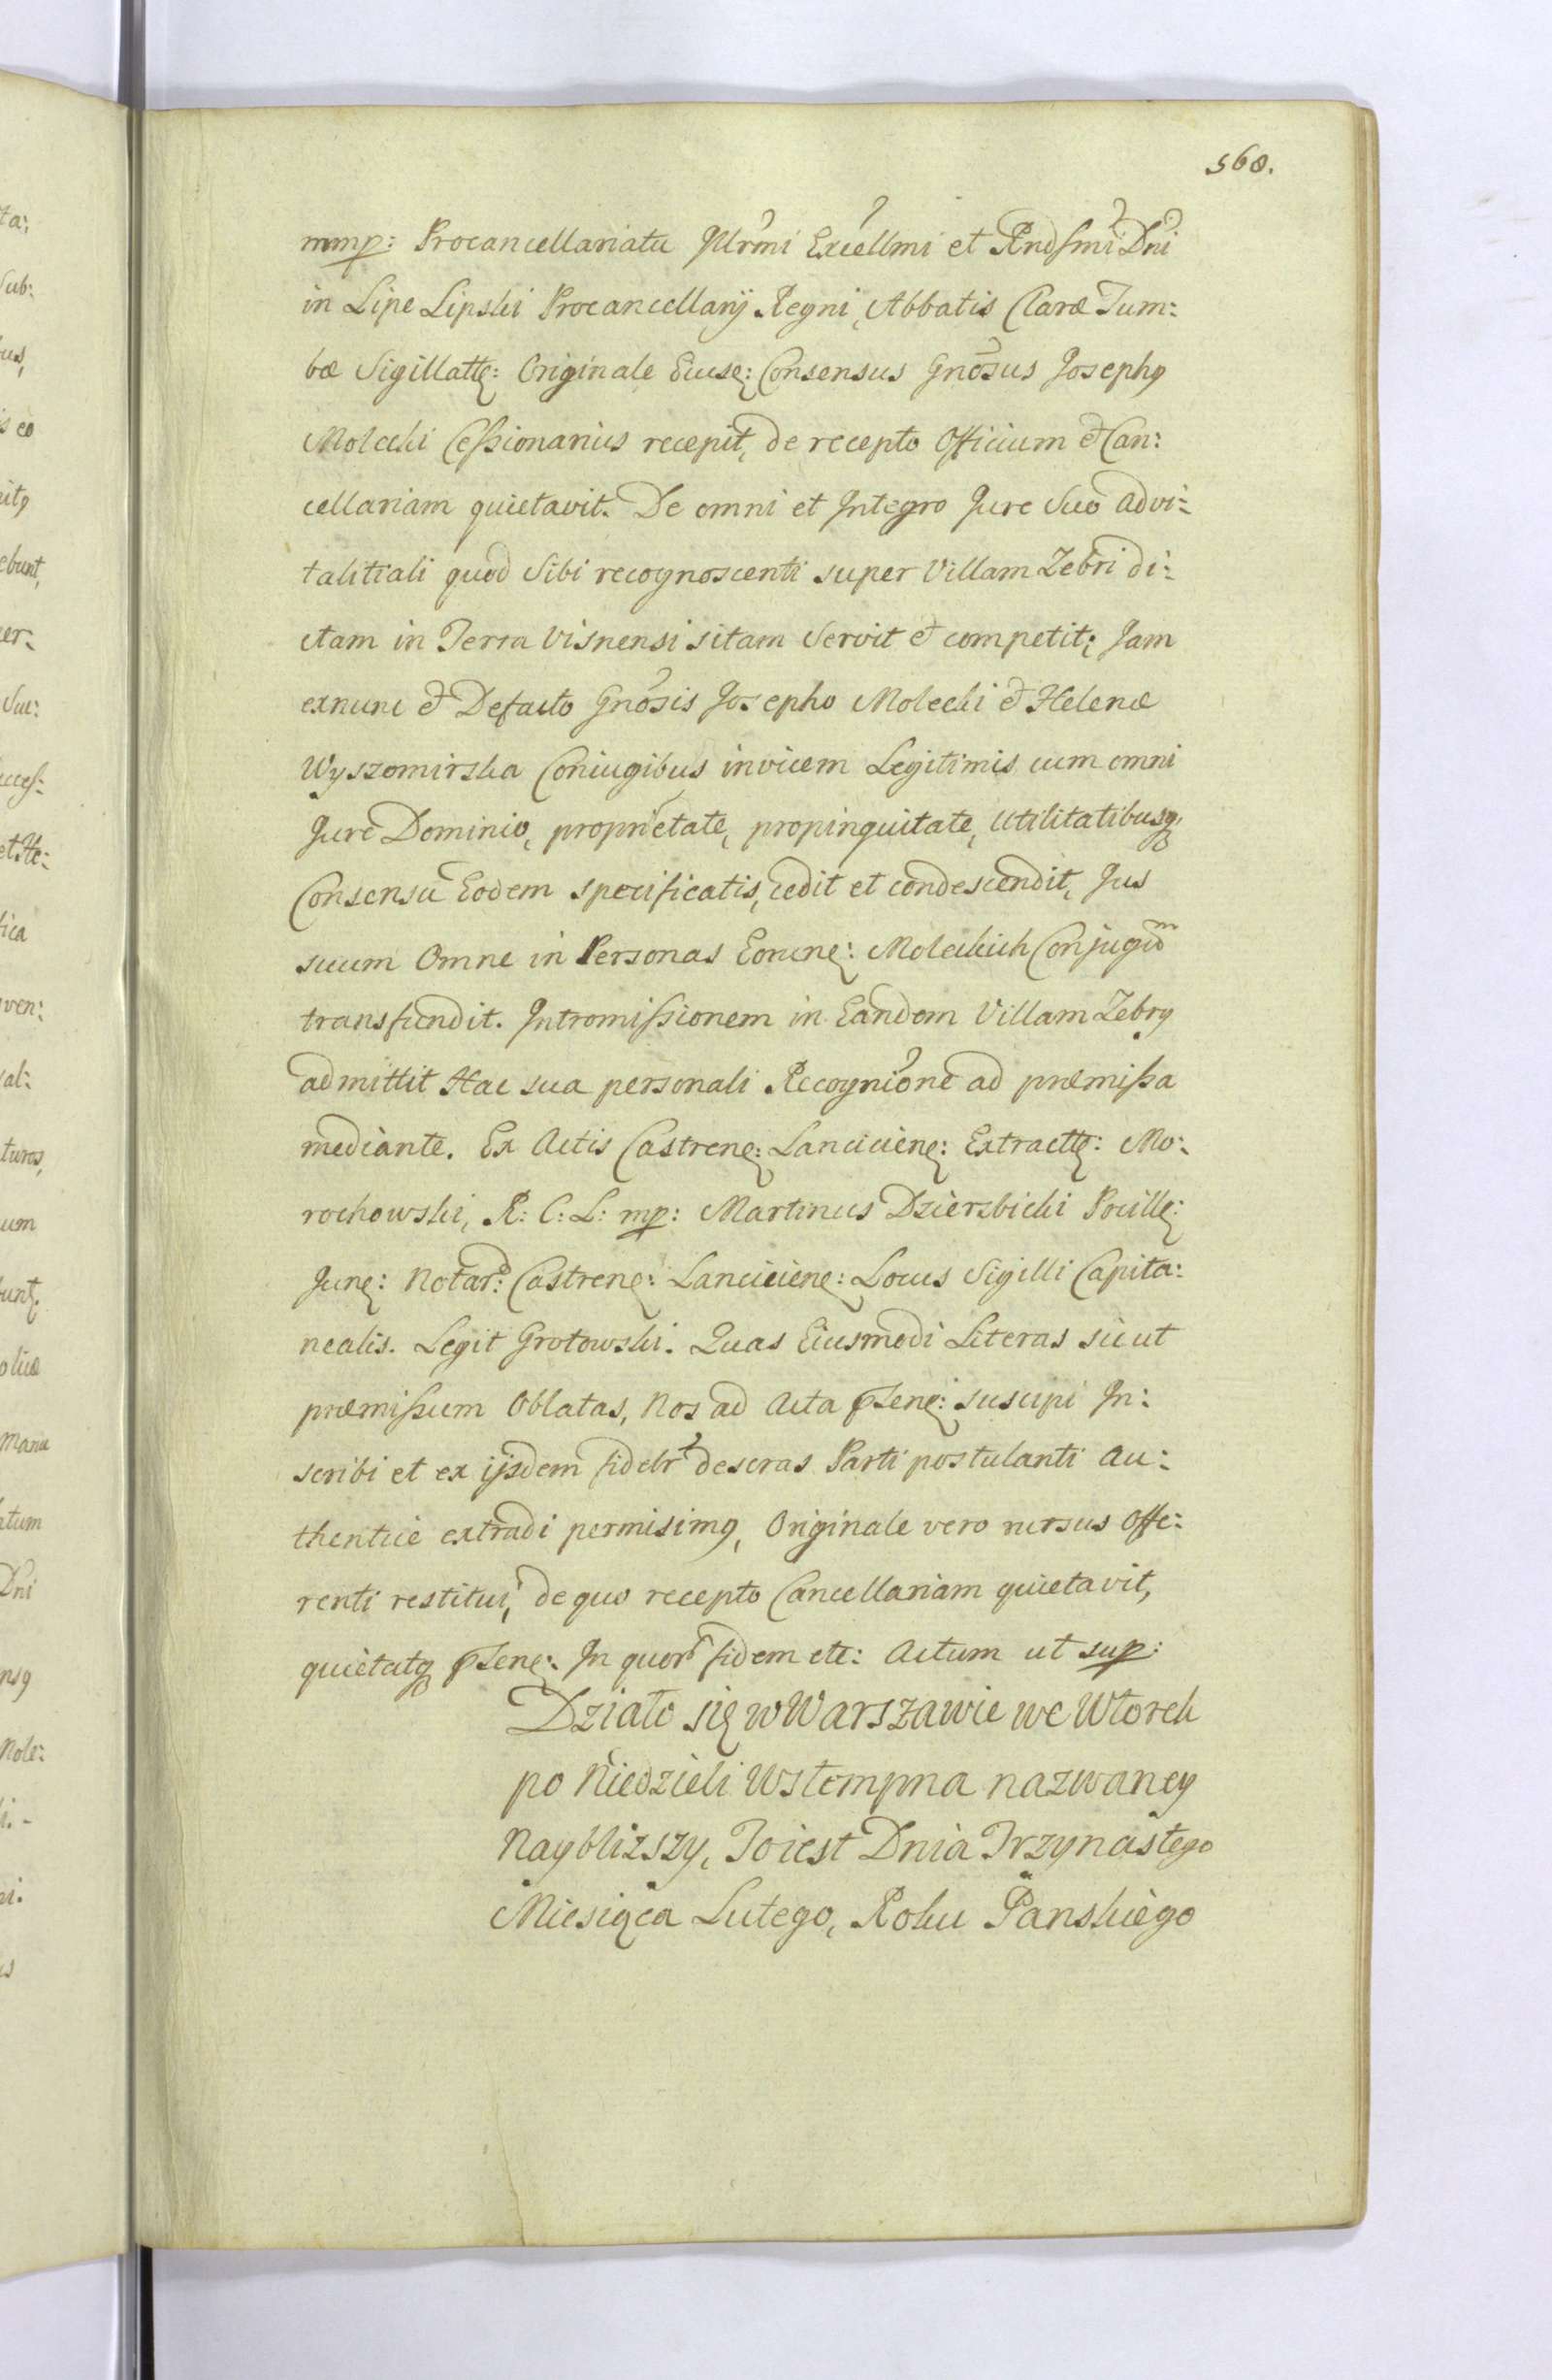 568.
mmp: Procancellariatu Illrmi Excellmi et Rndssmi Dni
in Lipe Lipski Procancellarÿ Regni, Abbatis Claræ Tum:
bæ Sigillatt: Originale Eiusq: Consensus Gnosus Josephq
Molecki Cessionarius recepit, de recepto Officium et Can:
cellariam quietavit. De omni et Integro Jure Suo advi:
talitiali quod Sibi recognoscenti super Villam Zebri di:
ctam in Terra Visnensi sitam Servit et competit; Jam
exnunc et Defacto Gnosis Josepho Molecki et Helenæ
Wyszomirska Coniugibus invicem Legitimis cum omni
Jure Dominio, proprietate, propinquitate, Utilitatibusq
Consensu Eodem specificatis, cedit et condescendit, Jus
suum Omne in Personas Eorune: Moleckich Conjugum
transfundit. Intromissionem in Eandem Villam Zebry
admittit Hac sua personali Recognione ad præmissa
mediante. Ex Actis Castrene: Lanciciene: Extractt: Mo:
rochowski, R: C: L: mp: Martinus Dzierzbicki Pocille:
June: Notar: Castrene: Lanciciene: Locus Sigilli Capita:
nealis. Legit Grotowski. Quas Eiusmodi Literas sicut
præmissum Oblatas, Nos ad Acta psene: suscipi In:
scribi et ex ijsdem fidelr descras Parti postulanti au:
thentice extradi permisimq, Originale vero rursus Offe:
renti restitui, de quo recepto Cancellariam quietavit,
quietatq psene: In quor fidem etc: Actum ut sup:
Działo się w Warszawie we Wtorek
po Niedzieli Wstempna nazwaney
Naybliższy, To iest Dnia Trzynastego
Miesiąca Lutego, Roku Panskiego